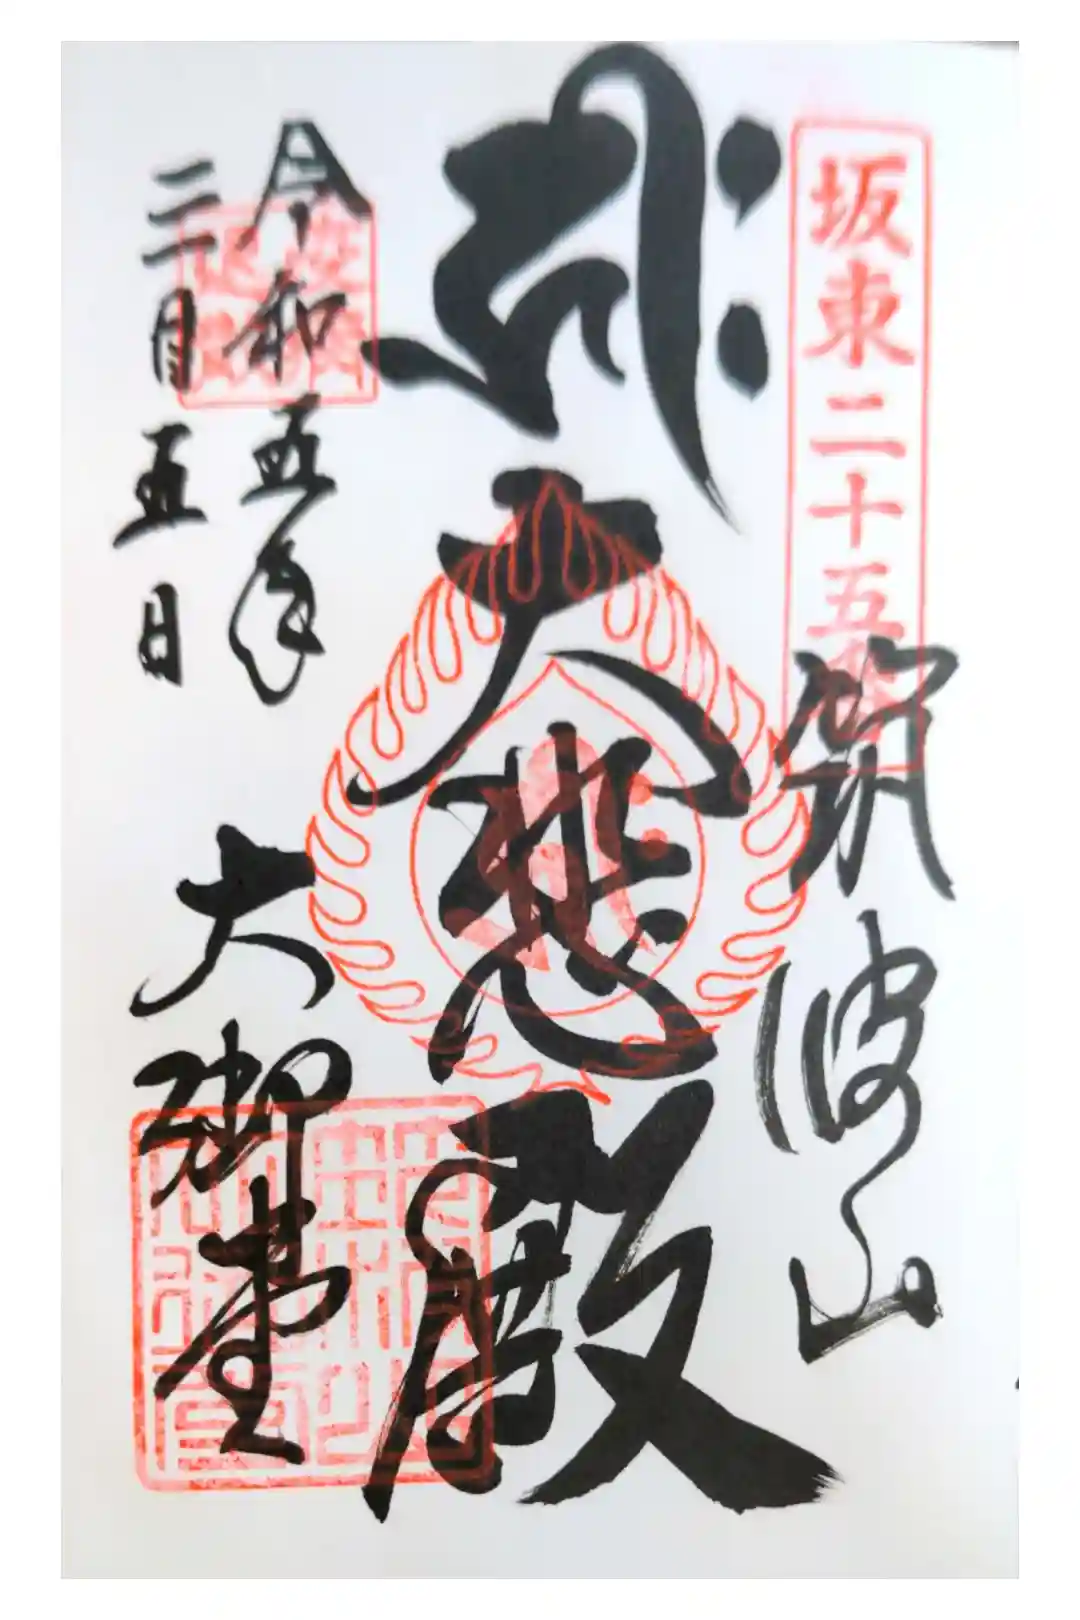 坂東二十五番
筑波山
𑖮𑖿𑖨𑖱𑖾
大悲殿
令和五年
三月五日
大御堂